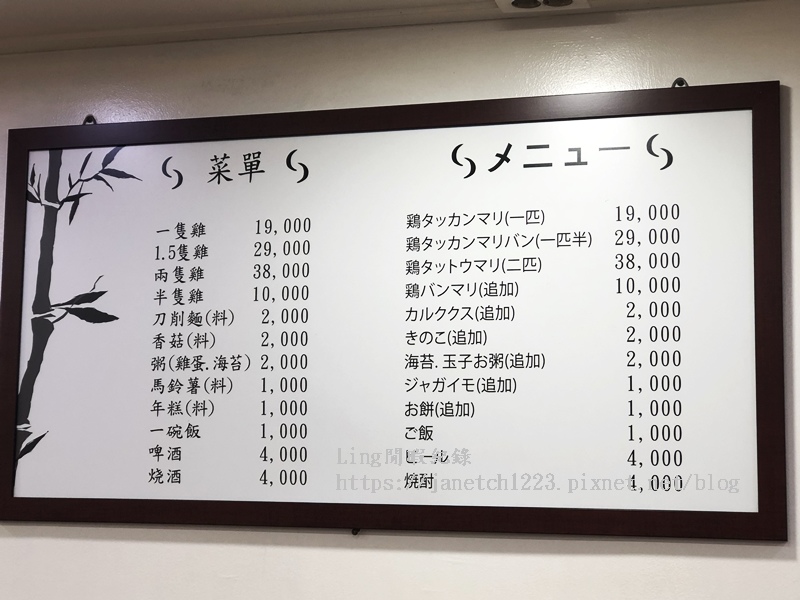 菜單
一隻雞 19,000
1.5隻雞 29,000
兩隻雞 38,000
半隻雞 10,000
刀削麵(料) 2,000
香菇(料) 2,000
粥(雞蛋.海苔) 2,000
馬鈴薯(料) 1,000
年糕(料) 1,000
一碗飯 1,000
啤酒 4,000
烧酒 4,000
メニュー
鶏タッカンマリ(一匹) 19,000
鶏タッカンマリバン(一匹半) 29,000
鶏タットウマリ(二匹) 38,000
鶏バンマリ(追加) 10,000
カルククス(追加) 2,000
きのこ(追加) 2,000
海苔.玉子お粥(追加) 2,000
ジャガイモ(追加) 1,000
お餅(追加) 1,000
ご飯 1,000
ビール 4,000
焼酎 4,000
Ling閒暇紀錄
https://janetch1223.pixnet.net/blog